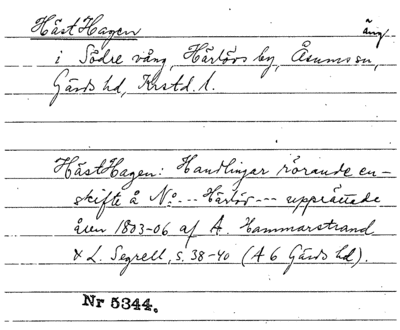 HästHagen äng
i Södre vång, Härlövs by, Åsums sn,
Gärds hd, Krstd. l.
HästHagen: Handlingar rörande en-
skifte å No --- Härlöv --- upprättade
åren 1803-06 af A. Hammarstrand
& L. Segrell, s. 38-40 (A 6 Gärds hd).
Nr 5344.